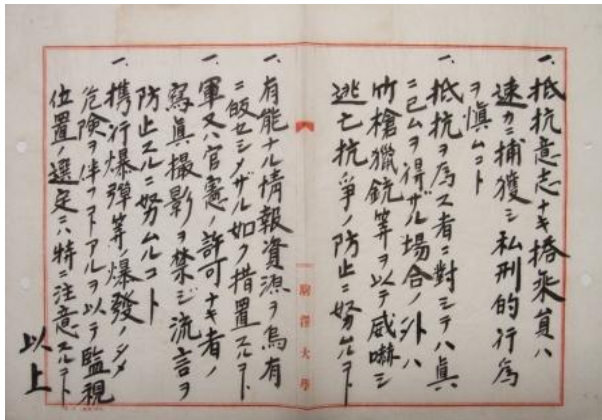 一、抵抗意志ナキ搭乘員ハ
速カニ捕獲シ私刑的行爲
ヲ愼ムコト
一、抵抗ヲ爲ス者ニ對シテハ眞
ニ已ムヲ得ザル場合ノ外ハ
竹槍獵銃等ヲ以テ威嚇シ
逃亡抗爭ノ防止ニ努ムルコト
一、有能ナル情報資源ヲ烏有
ニ皈セシメザル如ク措置スルコト
一、軍又ハ官憲ノ許可ナキ者ノ
寫眞撮影ヲ禁ジ流言ヲ
防止スルニ努ムルコト
一、携行爆彈等ノ爆發ノタメ
危險ヲ伴フコトアルヲ以テ監視
位置ノ選定ニハ特ニ注意スルコト
以上
駒澤大學